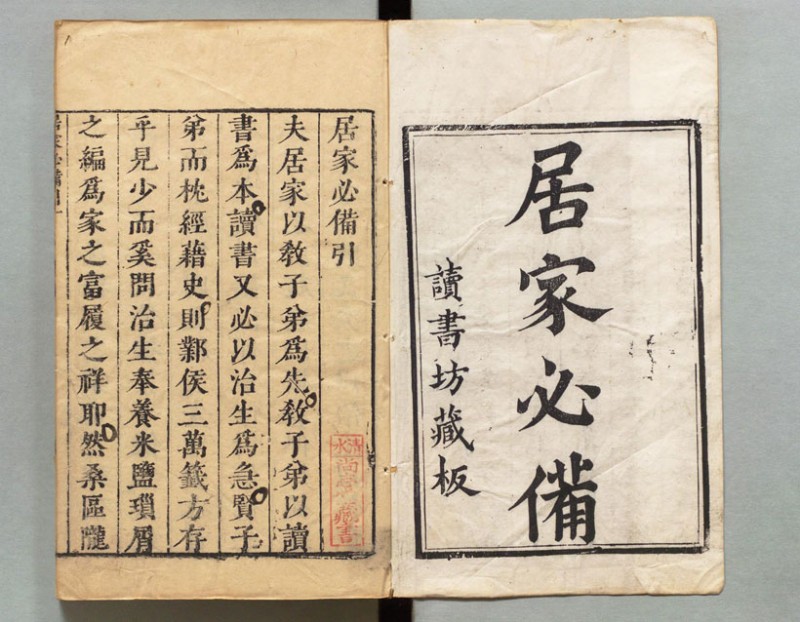 居家必備
讀書坊藏板
居家必備引
夫居家以教子弟爲先教子弟以讀
書爲本讀書又必以治生爲急賢子
弟而枕經藉史則鄴侯三萬籤方存
乎見少而奚問治生奉養米鹽瑣屑
之編爲家之富履之祥耶然桑區隴